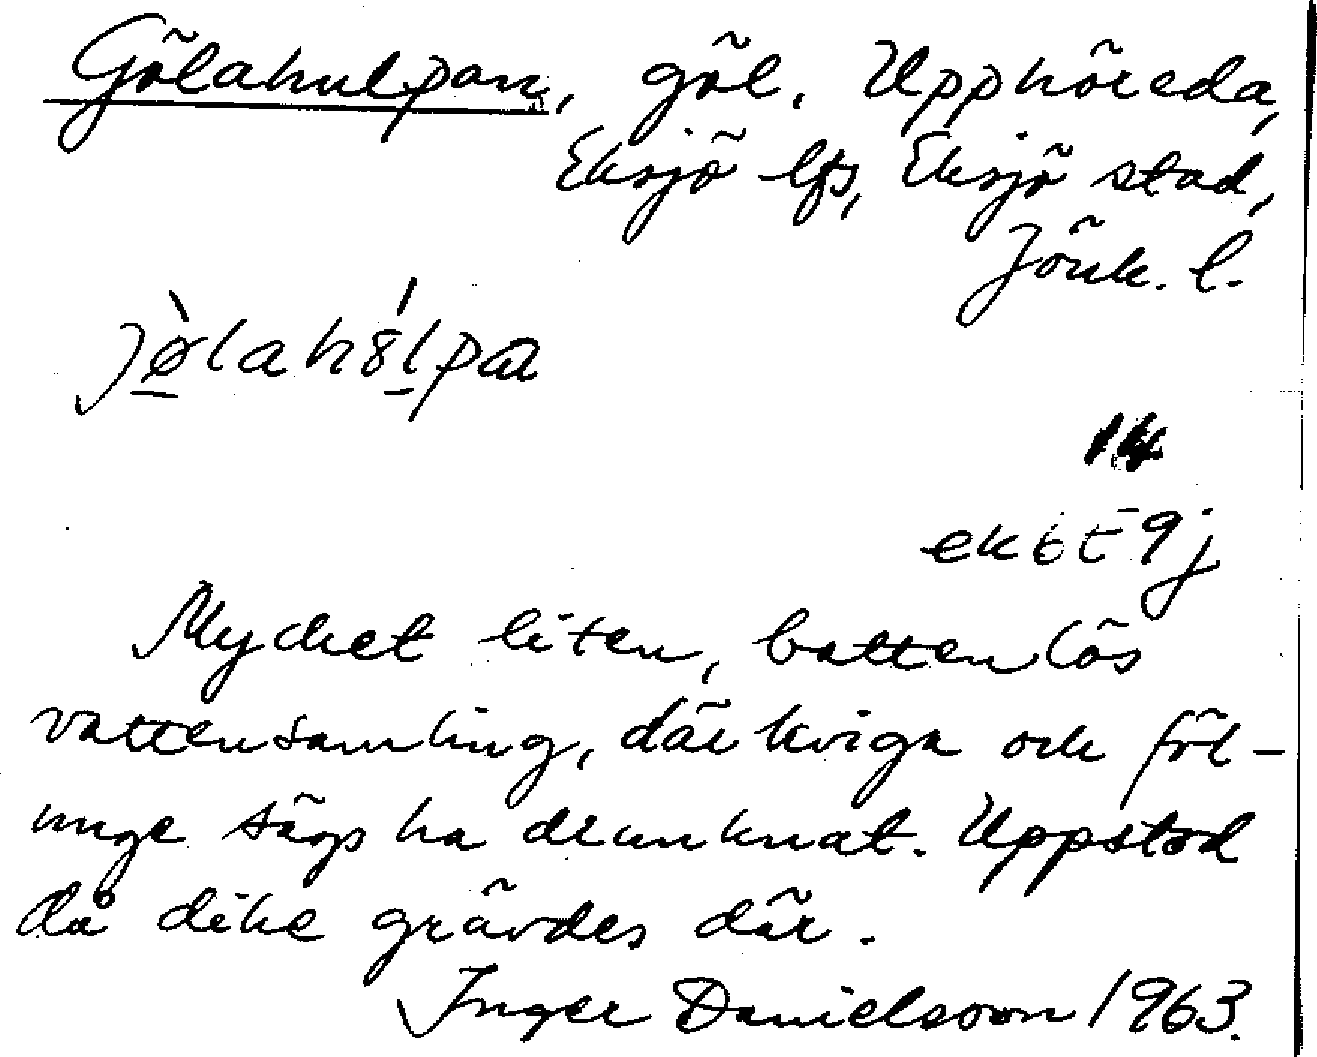 Gölahulpan, göl, Upphöreda,
Eksjö lfs, Eksjö stad,
Jönk. l.
jø̀lahúlpa
14
ek 6E9j
Mycket liten, bottenlös
vattensamling, där kviga och föl-
unge sägs ha drunknat. Uppstod
då dike grävdes där.
Inger Danielsson 1963.